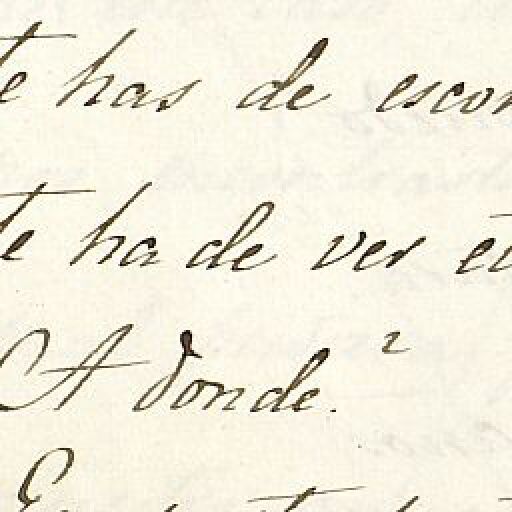 te has de escon
te ha de ver et
A donde.²